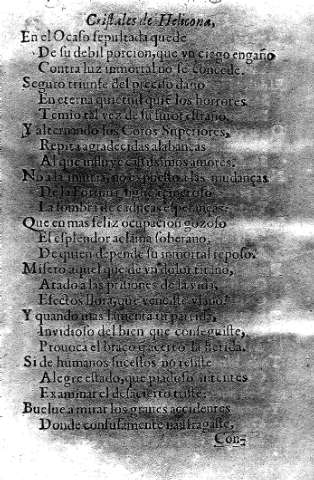 Cristales de Helicona,
En el Ocaso sepultada quede
De su debil porcion, que vn ciego engaño
Contra luz inmortal no se concede.
Seguro triunfe del preciso daño
En eterna quietud, que los horrores
Temiò tal vez de su
Y alternando los Coros Superiores,
Repita agradecidas alabanças
Al que influye castissimos amores.
No à la no expuesto à las mudanças
De la Fortuna sigue
La sombra de caducas esperanças:
Que en mas feliz ocupacion gozoso
El esplendor aclama soberano,
De quien depende su inmortal reposo.
Misero aquel que de vn dolor tirano,
Atado a las prisiones de la vida,
Efectos llora, que venciste vfano!
Y quando mas lamenta tu partida,
Invidioso del bien que conseguiste,
Provoca el braço y acerca la herida.
Si de humanos sucessos no resiste
Alegre estado, que piadoso intentes
Examinar el desacierto triste:
Buelue a mirar los graues accidentes
Donde confusamente naufragaste,
Con-